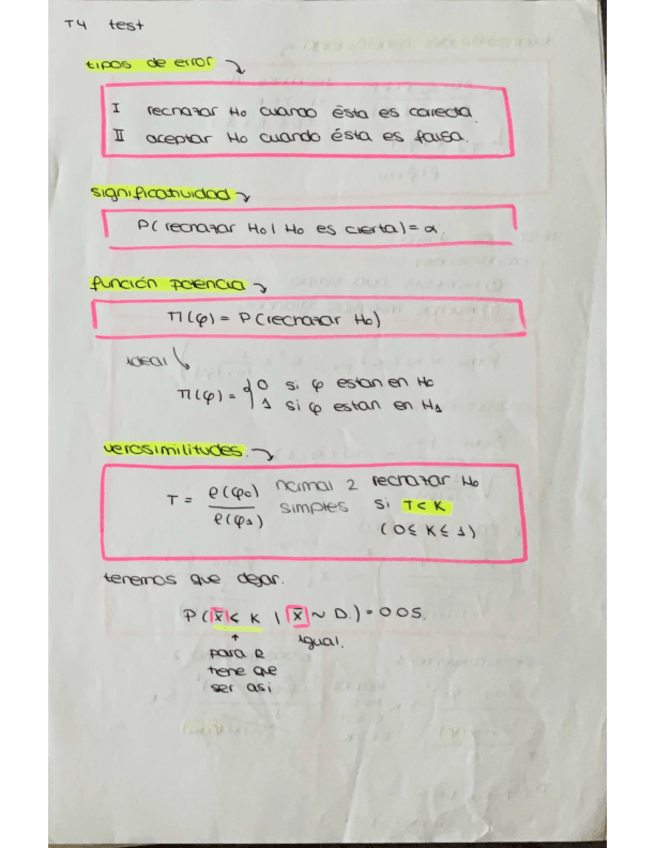 T4 test
tipos de error
I rechazar H₀ cuando ésta es correcta.
II aceptar H₀ cuando ésta es falsa.
significatividad
P( rechazar H₀ | H₀ es cierta) = α.
función potencia
Π(φ) = P(rechazar H₀)
ideal
Π(φ) = { 0 si φ estan en H₀
1 si φ estan en H₁
verosimilitudes.
T = ℓ(φ₀) / ℓ(φ₁) normal 2 simples rechazar H₀ si T < K
(0 ≤ K ≤ 1)
tenemos que dejar.
P( x̄ < K | x̄ ~ D.) = 0.05.
↑ igual.
para R
tiene que
ser asi